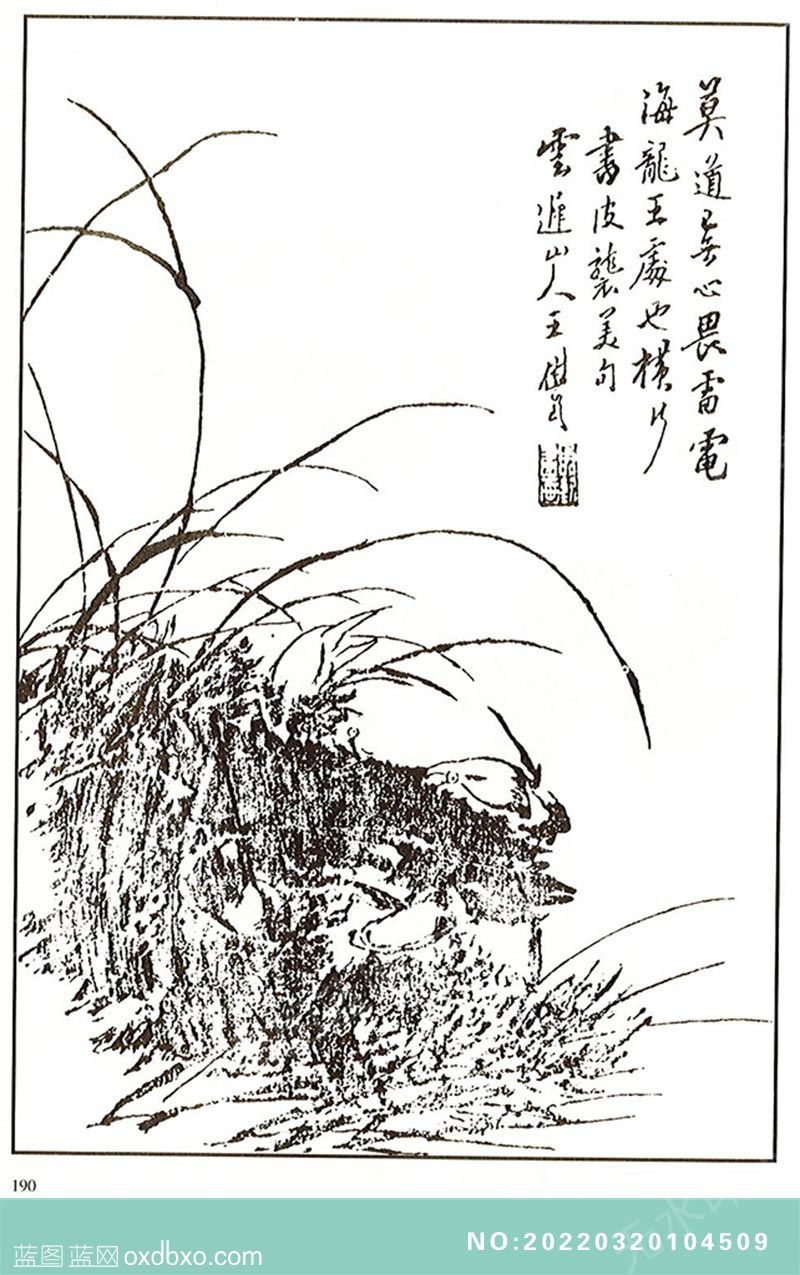 莫道無心畏雷電
海龍王處也橫行
書皮襲美句
雲山人王
190
蓝图蓝网oxdbxo.com
NO:20220320104509